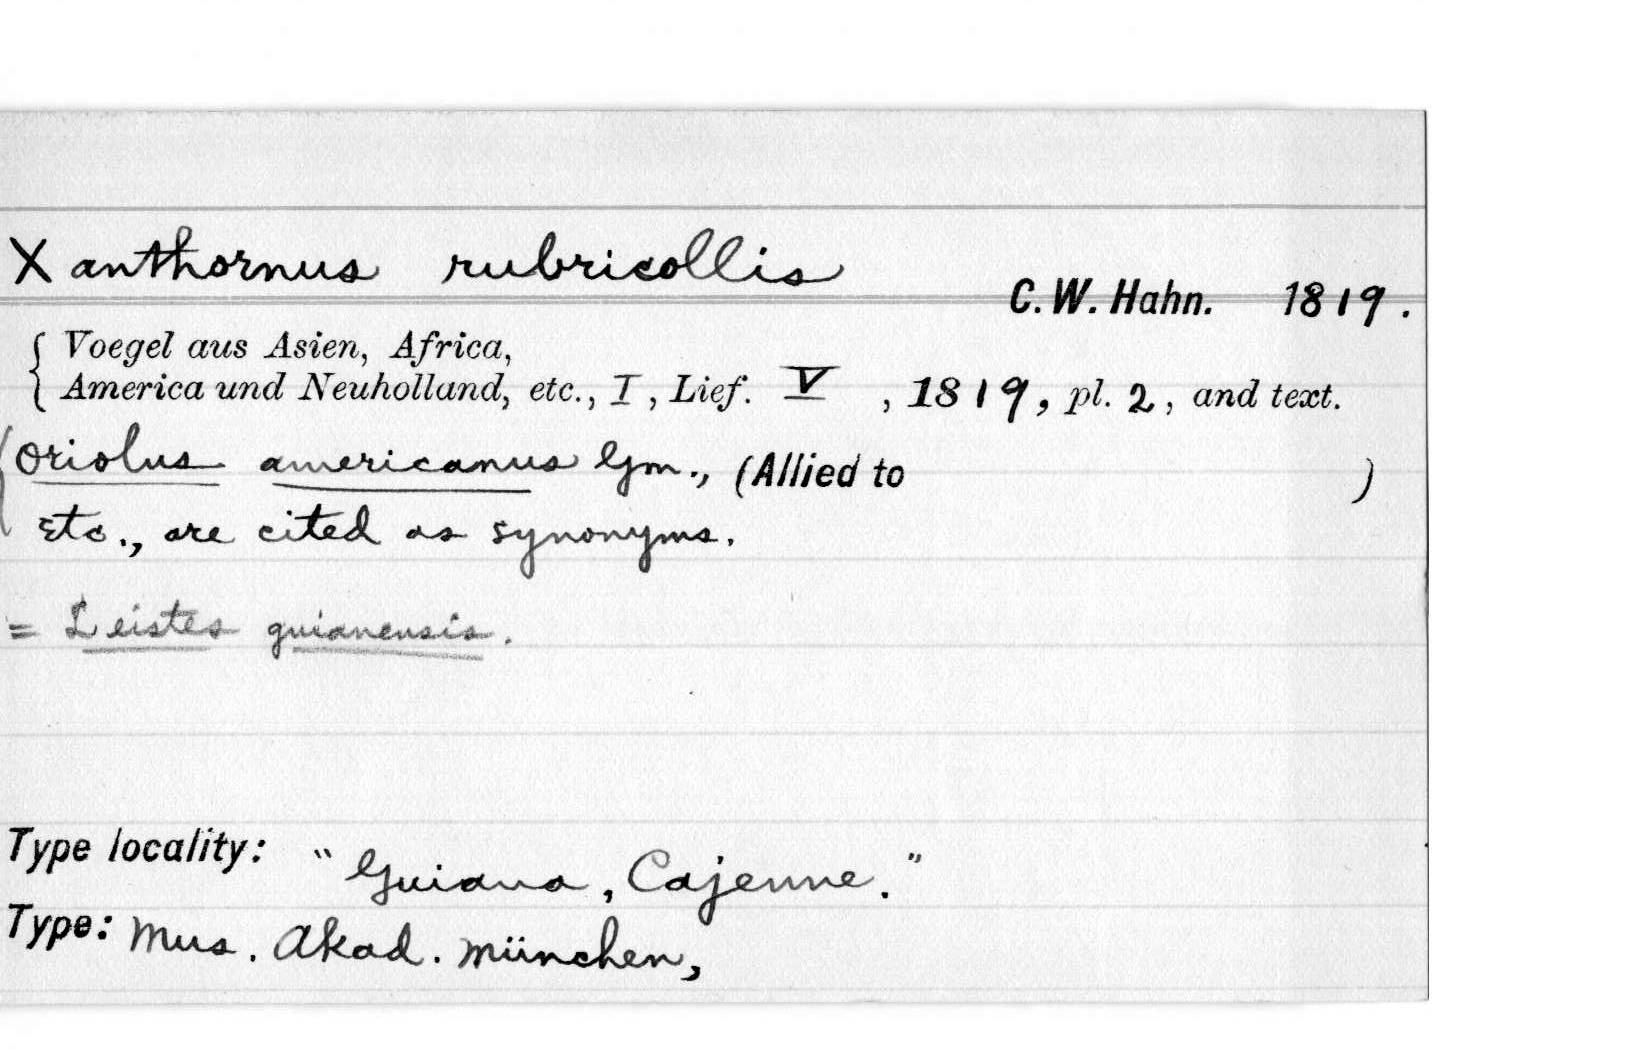 Xanthornus rubricollis
C. W. Hahn. 1819.
Voegel aus Asien, Africa,
America und Neuholland, etc., I, Lief. V, 1819, pl. 2, and text.
Oriolus americanus Gm., (Allied to )
Etc., are cited as synonyms.
= Leistes guianensis.
Type locality: "Guiana, Cajenne."
Type: Mus. Akad. München,